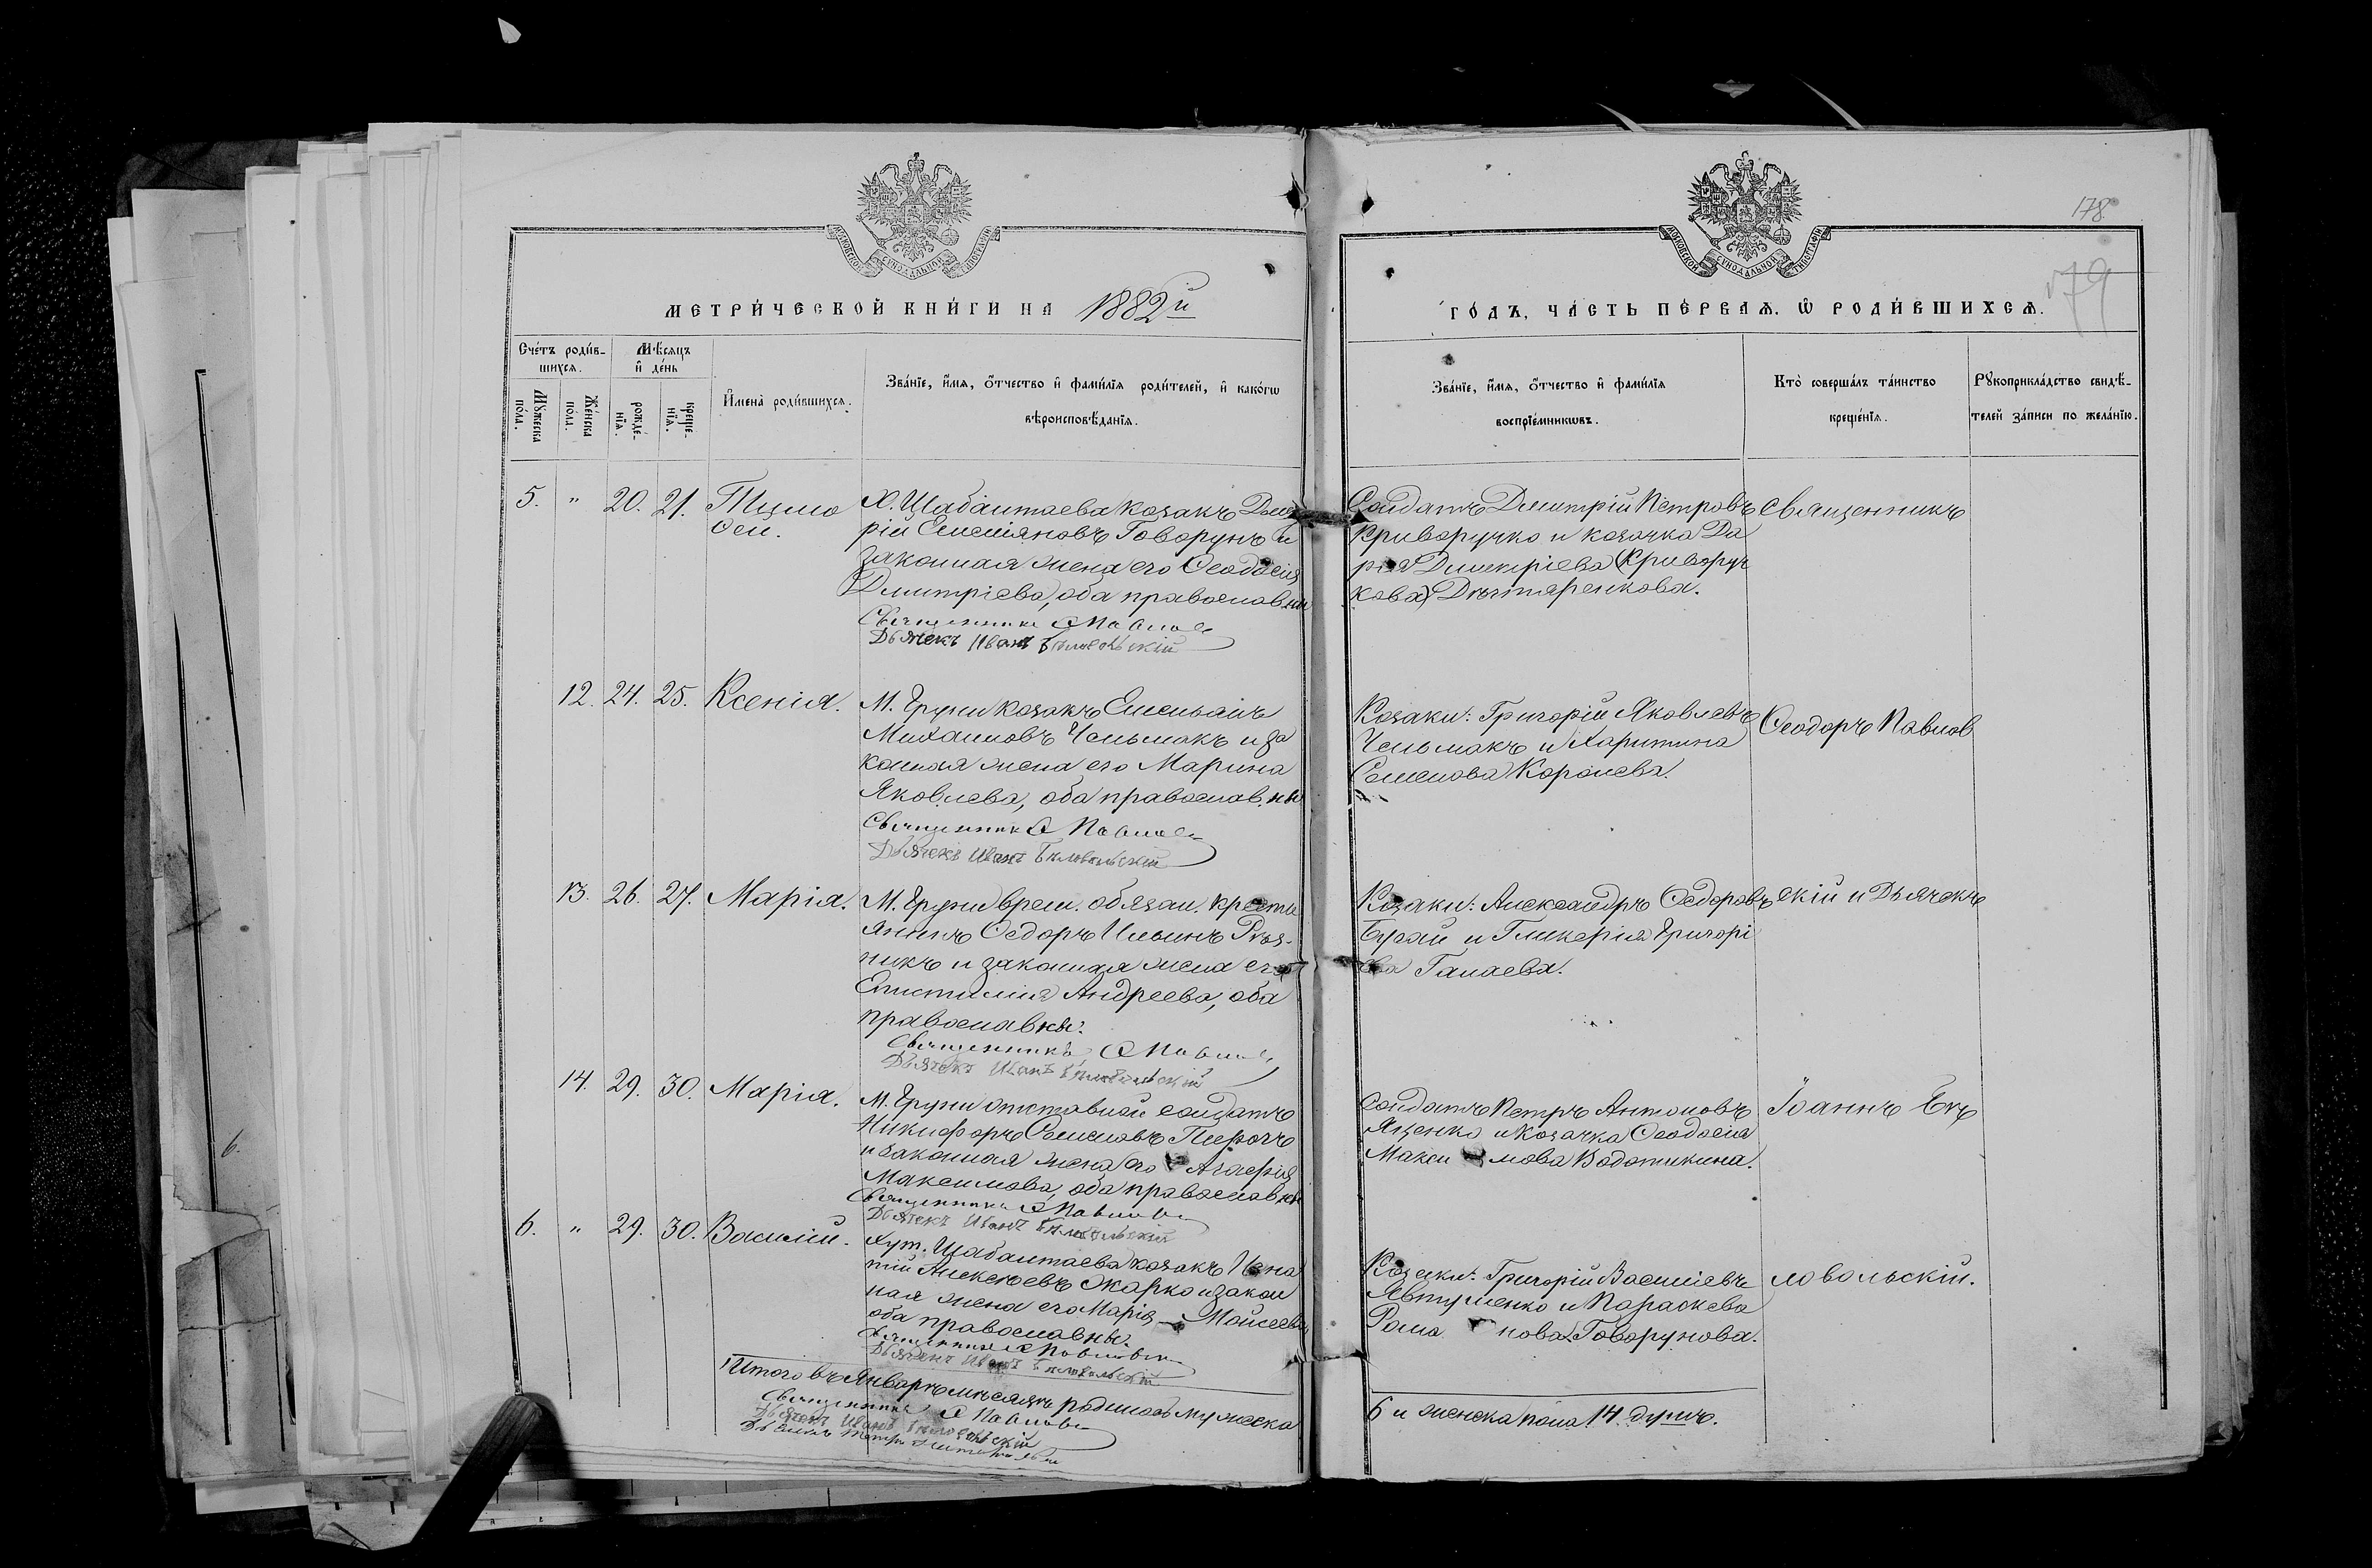 178
179
МОСКОВСКОЙ СУНОДАЛЬНОЙ ТИПОГРАФІИ
МОСКОВСКОЙ СУНОДАЛЬНОЙ ТИПОГРАФІИ
МЕТРИ́ЧЕСКОЙ КНИ́ГИ НА 1882й
ГО́ДЪ, ЧА́СТЬ ПЕ́РВАѦ. Ѡ РОДИ́ВШИХСѦ.
Сче́тъ роди́в-
шихсѧ.
Мꙋ́жеска по́ла.
Же́нска по́ла.
Мѣ́сѧцъ и де́нь
рожде́-нїѧ.
креще́-нїѧ.
И҆мена̀ роди́вшихсѧ.
Зва́нїе, и҆́мѧ, ѻ҆́тчество и҆ фами́лїѧ роди́телей, и҆ како́гѡ
вѣроисповѣ́данїѧ.
Зва́нїе, и҆́мѧ, ѻ҆́тчество и҆ фами́лїѧ
воспрїе́мникѡвъ.
Кто̀ соверша́лъ та́инство
креще́нїѧ.
Рꙋкоприкла́дство свидѣ́-
телей за́писи по жела́нїю.
5. " 20. 21. Тимо
ѳей.
Х. Шабалтаева козакъ Дмит
рій Емеліяновъ Говорунъ и
законная жена его Ѳеодосія
Дмитріева, оба православны
Священникъ Ѳ Павловъ
Дьячекъ Иванъ Бѣловольскій
Солдатъ Дмитрій Петровъ
Криворучко и козачка Да
рія Димитріева (Криворуч
кова) Дегтяренкова.
Священникъ
12. 24. 25. Ксенія.
М. Груни козакъ Емельянъ
Михаиловъ Чельмакъ и за
конная жена его Марина
Яковлева, оба православны
Священникъ Ѳ Павловъ
Дьячекъ Иванъ Бѣловольскій
Козаки: Григорій Яковлевъ
Чельмакъ и Харитина
Семенова Королева.
Ѳеодоръ Павлов
13. 26. 27. Марія.
М. Груни врем. обязан. крестья
янинъ Ѳедоръ Ильинъ Рѣз-
никъ и законная жена его
Епистимія Андреева, оба
православны.
Священникъ Ѳ Павловъ
Дьячекъ Иванъ Бѣловольскій
Козаки: Александръ Ѳедоровъ
Бугай и Гликерія Григорі
ева Галаева.
скій и Дьячекъ
14. 29. 30. Марія.
М. Груни отставной солдатъ
Никифоръ Семеновъ
и законная жена его Агафія
Максимова, оба православны
Священникъ Ѳ Павловъ
Дьячекъ Иванъ Бѣловольскій
Солдатъ Петръ Антоновъ
Яценко и козачка Ѳеодосія
Макси мова Водотикина.
Іоаннъ Бѣ
6. " 29. 30. Василій.
Хут. Шабалтаева козакъ Игна
тій Алексѣевъ Жарко и закон
ная жена его Марія Моисеева
оба православны.
Священникъ Ѳ Павловъ
Дьячекъ Иванъ Бѣловольскій
Козаки: Григорій Василіевъ
Явтушенко и Параскева
Рома нова Говорунова.
ловольскій.
Итого въ Январѣ мѣсяцѣ родилось мужеска
6 и женска пола 14 душъ.
Священникъ Ѳ Павловъ
Дьячекъ Иванъ Бѣловольскій
6.